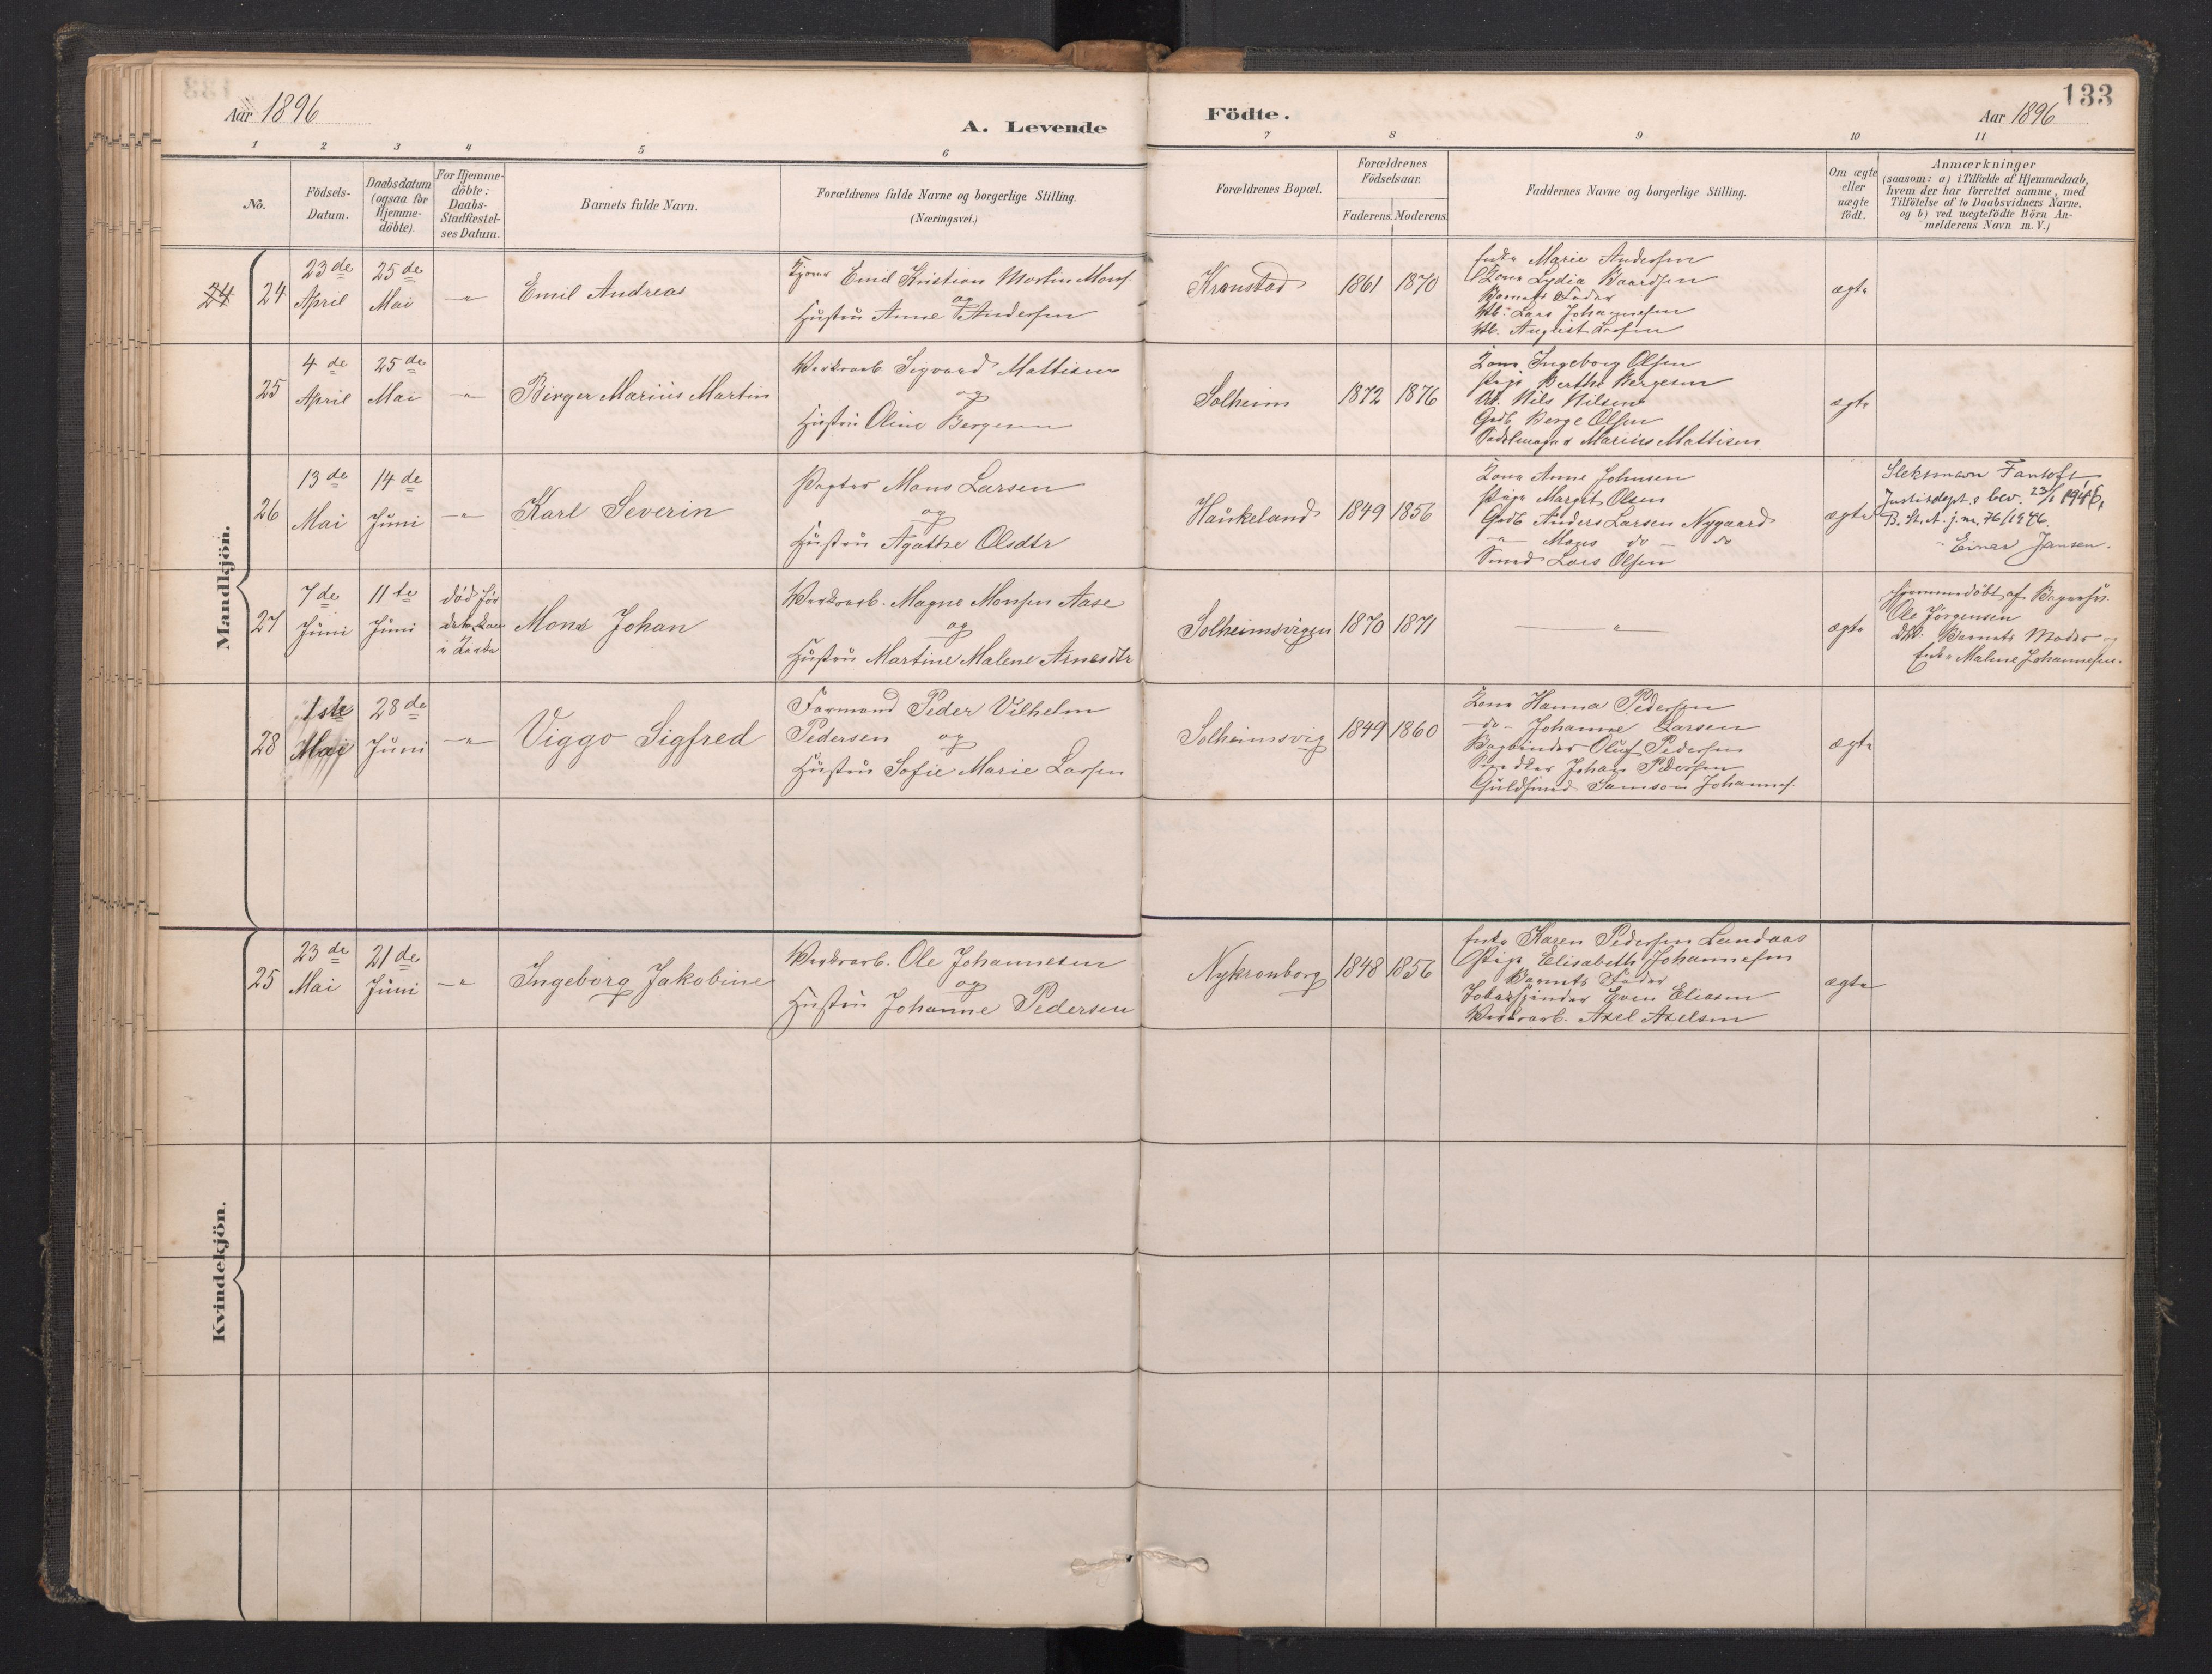 133
Aar 1896
A. Levende
Födte.
Aar 1896
1 2 3 4 5 6 7 8 9 10 11
No.
Födsels-
Datum.
Daabsdatum
(ogsaa for
Hjemme-
döbte).
For Hjemme-
döbte:
Daabs-
Stadfæstel-
ses Datum.
Barnets fulde Navn.
Forældrenes fulde Navne og borgerlige Stilling.
(Næringsvei.)
Forældrenes Bopæl.
Forældrenes
Födselsaar.
Faderens. Moderens.
Faddernes Navne og borgerlige Stilling.
Om ægte
eller
uægte
födt.
Anmærkninger
(saasom: a) i Tilfælde af Hjemmedaab,
hvem der har forrettet samme, med
Tilföielse af to Daabsvidners Navne,
og b) ved uægtefödte Börn An-
melderens Navn m. V.)
Mandkjön.
24 24
23de
April
25de
Mai
-"-
Emil Andreas
Emil Kristian Martin Mons.
og
Hustru Anne Andersen
Kronstad
1861 1870
Enke Marie Andersen
Kone Lydia Baardsen
Barnets Fader
Lars Johannesen
August
ægte
25
4de
April
25de
Mai
-"-
Birger Marius Martin
Værksarb. Sigvard Mattisen
og
Hustru Oline Bergesen
Solheim
1872 1876
Kone Ingeborg Olsen
Pige Berthe Bergesen
Nils Nilsen
Gdb. Berge Olsen
Sadelmager Marius Mattisen
ægte
26
13de
Mai
14de
Juni
-"-
Karl Severin
Pagter Mons Larsen
og
Hustru Agathe Olsdtr
Haukeland
1849 1856
Kone Anne Johnsen
Pige Margit Olsen
Gdb Anders Larsen Nygaard
-"- Mons do - do
Smed Lars Olsen
ægte
Slektsnavn Fantoft
Justisdept.s bev. 23/1 1946,
B. St. A. j.nr. 76/1946.
Einar Jansen.
27
7de
Juni
11te
Juni
död før
det kom
i Kirke
Mons Johan
Værksarb. Magne Monsen Aase
og
Hustru Martine Malene Arnesdtr
Solheimsvigen
1870 1871
-"-
ægte
Hjemmedöbt af
Ole Jörgensen
Barnets Moder og
Enke Malene Johannesen.
28
1ste
Mai
28de
Juni
-"-
Viggo Sigfred
Formand Peder Vilhelm
Pedersen og
Hustru Sofie Marie Larsen
Solheimsvig
1849 1860
Kone Hanna Pedersen
-do- Johanne Larsen
Bogbinder Oluf Pedersen
Snedker Johan Pedersen
Guldsmed Samson Johannes.
ægte
Kvindekjön.
25
23de
Mai
21de
Juni
-"-
Ingeborg Jakobine
Værksarb. Ole Johannesen
og
Hustru Johanne Pedersen
Nykronborg
1848 1856
Enke Karen Pedersen Landaas
Pige Elisabeth Johannesen
Barnets Fader
Tobakspinder Even Eliasen
Værksarb. Axel Axelsen
ægte